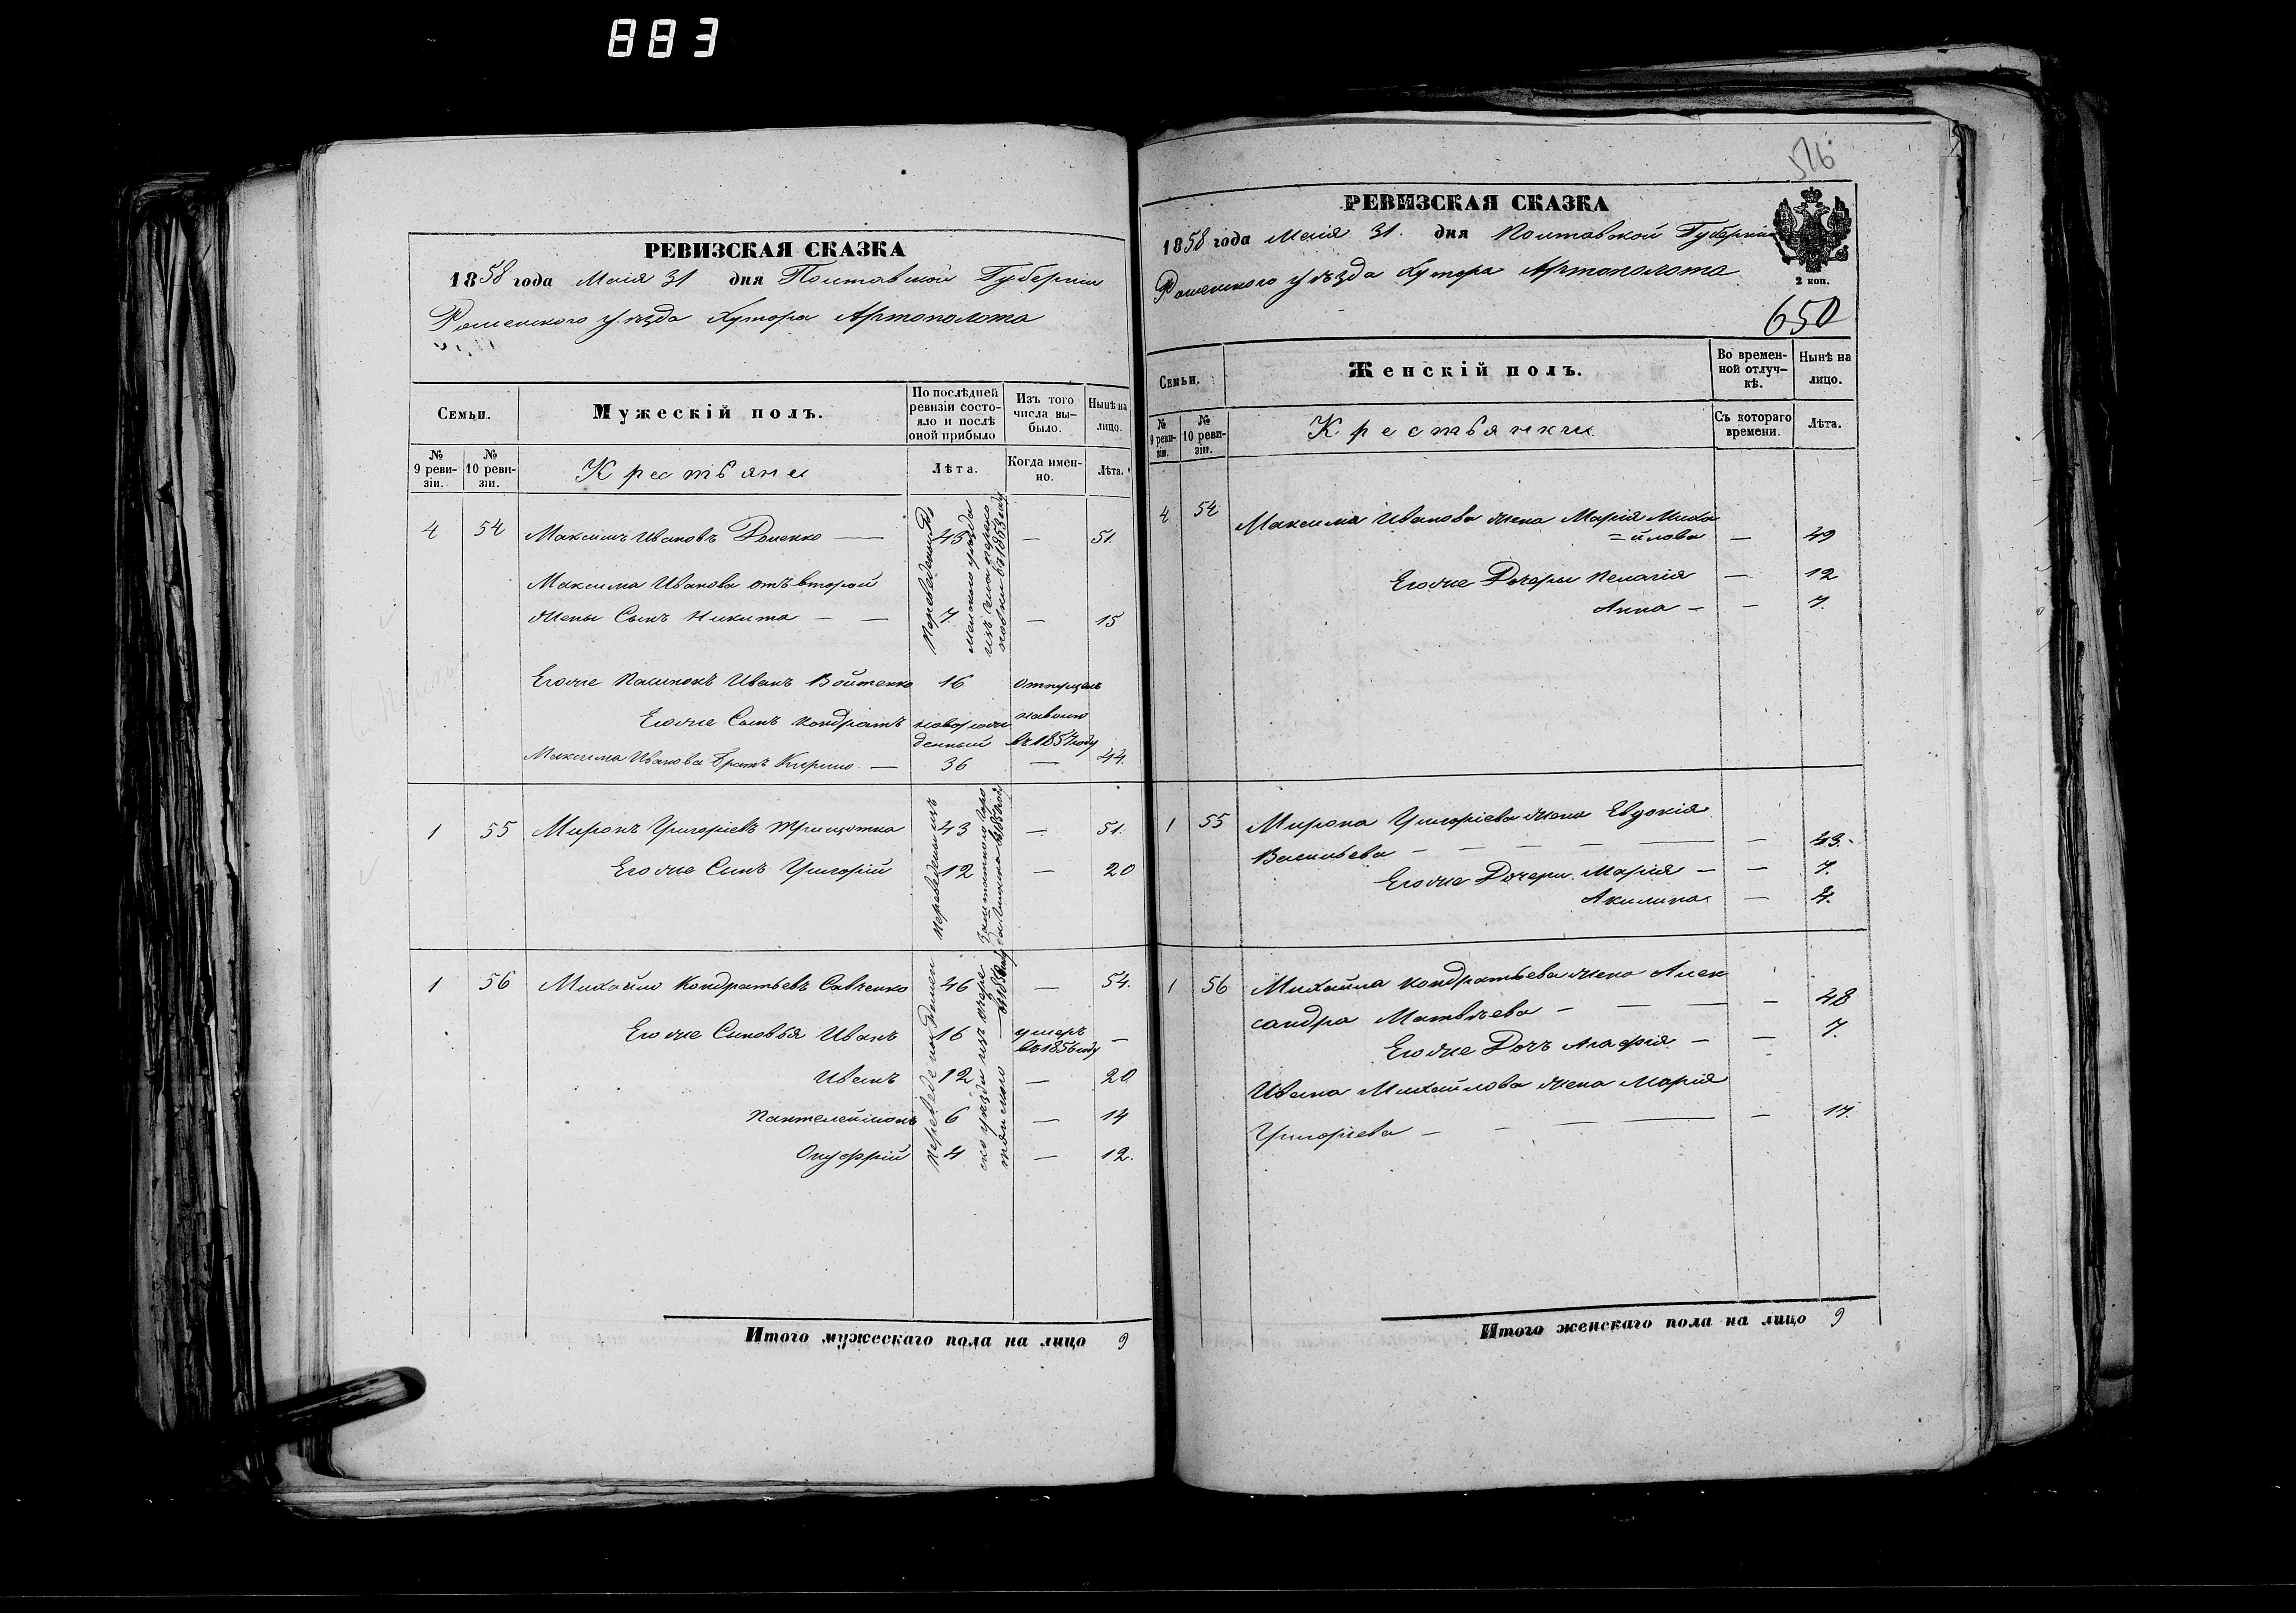 883
РЕВИЗСКАЯ СКАЗКА
1858 года Маія 31 дня Полтавской Губерніи
Роменского уѣзда Хутора Артополота
Семьи.
Мужескій полъ.
По послѣдней ревизіи состояло и послѣ оной прибыло
Изъ того числа выбыло.
Нынѣ на лицо.
№ 9 ревизіи.
№ 10 ревизіи.
Крестьяне
Лѣта.
Когда именно.
Лѣта.
4 54 Максимъ Ивановъ Доценко — 43 — 51.
Максима Иванова отъ второй
жены Сынъ Никита — — 7 — 15
Егоже Пасинокъ Иванъ Войтенко 16 отпущенъ
Егоже Сынъ Кондратъ новорож
денный въ 1854 году
Максима Иванова братъ Кирило — 36 — 44.
1 55 Миронъ Григоріевъ 43 — 51.
Егоже Сынъ Григорій 12 — 20
переведены изъ
1 56 Михайло Кондратьевъ Савченко 46 — 54.
Егоже Сыновья Иванъ 16 умеръ въ 1856 году —
Иванъ 12 — 20
Пантелеймонъ 6 — 14
Онуфрій 4 — 12.
Итого мужескаго пола на лицо 9
516
РЕВИЗСКАЯ СКАЗКА
1858 года Маія 31. дня Полтавской Губерніи
Роменского уѣзда Хутора Артополота
2 коп.
650
Семьи.
Женскій полъ.
Во временной отлучкѣ.
Нынѣ на лицо.
№ 9 ревизіи.
№ 10 ревизіи.
Крестьянки
Съ котораго времени.
Лѣта.
4 54 Максима Иванова жена Марія Миха
=йлова — 49
Егоже Дочери Пелагія — 12
Анна — — 7.
1 55 Мирона Григоріева жена Евдокія
Васильева — — — — — — 43.
Егоже Дочери Марія — — 7.
Акилина — 4.
1 56 Михайла Кондратьева жена Алек
сандра Матвѣева — — — — 48
Егоже Дочь Агафія — — 7.
Ивана Михайлова жена Марія
Григоріева — — — — — 17.
Итого женскаго пола на лицо 9